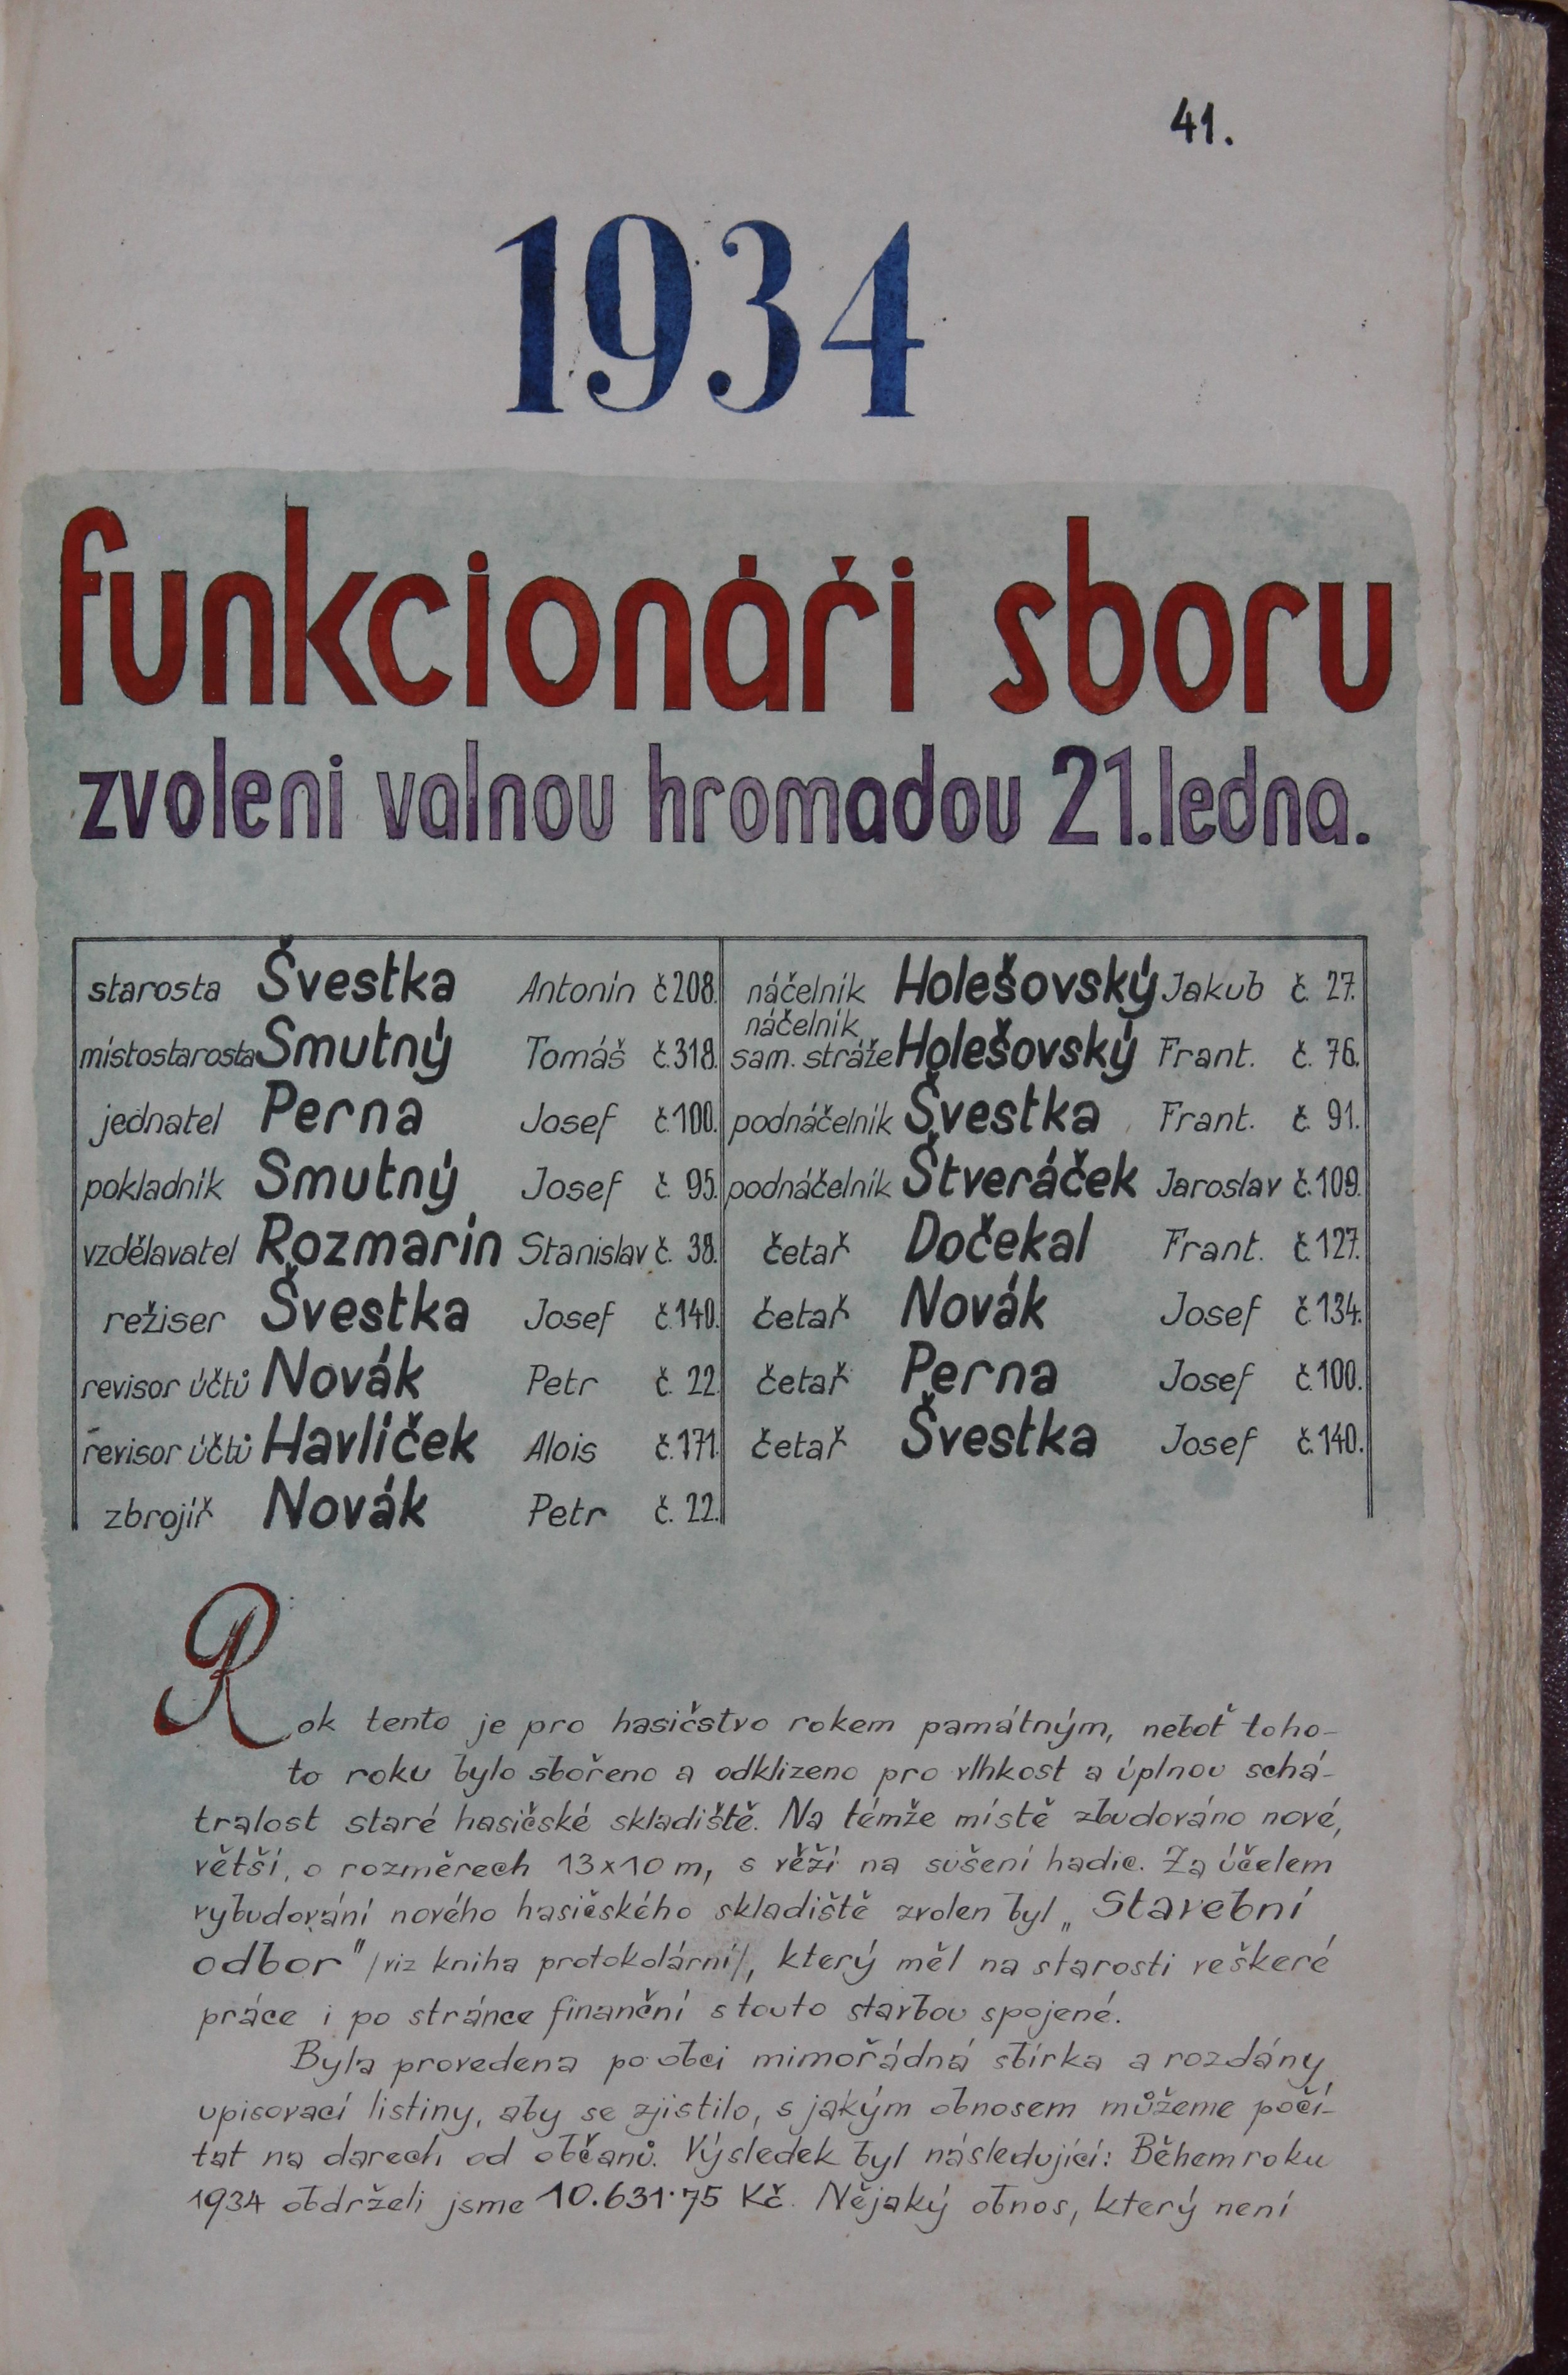 41.
1934
funkcionáři sboru
zvoleni valnou hromadou 21. ledna.
starosta Švestka Antonín č 208. náčelník Holešovský Jakub č. 27.
místostarosta Smutný Tomáš č. 318. náčelník sam. stráže Holešovský Frant. č. 76.
jednatel Perna Josef č. 100. podnáčelník Švestka Frant. č. 91.
pokladník Smutný Josef č. 95. podnáčelník Štveráček Jaroslav č. 109.
vzdělavatel Rozmarín Stanislav č. 38. četař Dočekal Frant. č. 127.
režiser Švestka Josef č. 140. četař Novák Josef č. 134.
revisor účtů Novák Petr č. 22. četař Perna Josef č. 100.
revisor účtů Havlíček Alois č. 171. četař Švestka Josef č. 140.
zbrojíř Novák Petr č. 22.
Rok tento je pro hasičstvo rokem památným, neboť toho-
to roku bylo sbořeno a odklizeno pro vlhkost a úplnou schá-
tralost staré hasičské skladiště. Na témže místě zbudováno nové,
větší, o rozměrech 13x10 m, s věží na sušení hadic. Za účelem
vybudování nového hasičského skladiště zvolen byl „Stavební
odbor" /viz kniha protokolární/, který měl na starosti veškeré
práce i po stránce finanční s touto stavbou spojené.
Byla provedena po obci mimořádná sbírka a rozdány
upisovací listiny, aby se zjistilo, s jakým obnosem můžeme počí-
tat na darech od občanů. Výsledek byl následující: Během roku
1934 obdrželi jsme 10.631·75 Kč. Nějaký obnos, který není